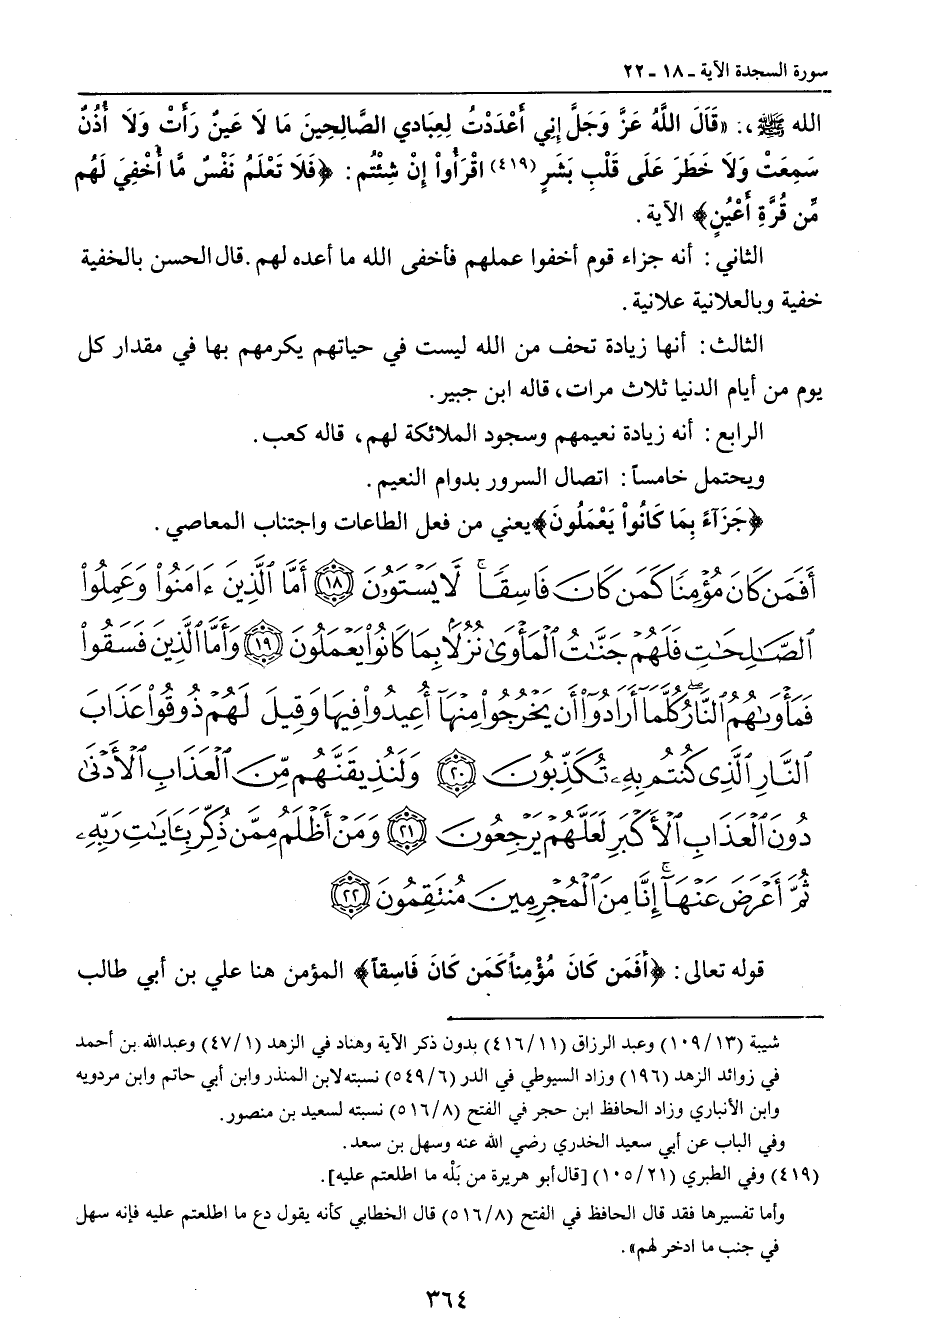 سورة السجدة الآية ـ ١٨ ـ ٢٢
الله ﷺ،: «قَالَ اللَّهُ عَزَّ وَجَلَّ إِني أَعْدَدْتُ لِعِبَادي الصَّالِحِينَ مَا لَا عَينٌ رَأَتْ وَلَا أُذُنٌ
سَمِعَتْ وَلَا خَطَرَ عَلَى قَلْبِ بَشَرٍ (٤١٩) اقْرَأُواْ إِنْ شِئْتُم: ﴿فَلَا تَعْلَمُ نَفْسٌ مَّا أُخْفِيَ لَهُم
مِّن قُرَّةِ أَعْيُنٍ﴾ الآية.
الثاني: أنه جزاء قوم أخفوا عملهم فأخفى الله ما أعده لهم. قال الحسن بالخفية
خفية وبالعلانية علانية.
الثالث: أنها زيادة تحف من الله ليست في حياتهم يكرمهم بها في مقدار كل
يوم من أيام الدنيا ثلاث مرات، قاله ابن جبير.
الرابع: أنه زيادة نعيمهم وسجود الملائكة لهم، قاله كعب.
ويحتمل خامساً: اتصال السرور بدوام النعيم.
﴿جَزَآءً بِمَا كَانُواْ يَعْمَلُونَ﴾ يعني من فعل الطاعات واجتناب المعاصي.
أَفَمَن كَانَ مُؤْمِنًا كَمَن كَانَ فَاسِقًا ۚ لَّا يَسْتَوُۥنَ ١٨ أَمَّا ٱلَّذِينَ ءَامَنُوا۟ وَعَمِلُوا۟
ٱلصَّٰلِحَٰتِ فَلَهُمْ جَنَّٰتُ ٱلْمَأْوَىٰ نُزُلًۢا بِمَا كَانُوا۟ يَعْمَلُونَ ١٩ وَأَمَّا ٱلَّذِينَ فَسَقُوا۟
فَمَأْوَىٰهُمُ ٱلنَّارُ ۖ كُلَّمَآ أَرَادُوٓا۟ أَن يَخْرُجُوا۟ مِنْهَآ أُعِيدُوا۟ فِيهَا وَقِيلَ لَهُمْ ذُوقُوا۟ عَذَابَ
ٱلنَّارِ ٱلَّذِى كُنتُم بِهِۦ تُكَذِّبُونَ ٢٠ وَلَنُذِيقَنَّهُم مِّنَ ٱلْعَذَابِ ٱلْأَدْنَىٰ
دُونَ ٱلْعَذَابِ ٱلْأَكْبَرِ لَعَلَّهُمْ يَرْجِعُونَ ٢١ وَمَنْ أَظْلَمُ مِمَّن ذُكِّرَ بِـَٔايَٰتِ رَبِّهِۦ
ثُمَّ أَعْرَضَ عَنْهَآ ۚ إِنَّا مِنَ ٱلْمُجْرِمِينَ مُنتَقِمُونَ ٢٢
قوله تعالى: ﴿أَفَمَن كَانَ مُؤْمِناً كَمَن كَانَ فَاسِقاً﴾ المؤمن هنا علي بن أبي طالب
شيبة (١٠٩/١٣) وعبد الرزاق (٤١٦/١١) بدون ذكر الآية وهناد في الزهد (٤٧/١) وعبدالله بن أحمد
في زوائد الزهد (١٩٦) وزاد السيوطي في الدر (٥٤٩/٦) نسبته لابن المنذر وابن أبي حاتم وابن مردويه
وابن الأنباري وزاد الحافظ ابن حجر في الفتح (٥١٦/٨) نسبته لسعيد بن منصور.
وفي الباب عن أبي سعيد الخدري رضي الله عنه وسهل بن سعد.
(٤١٩) وفي الطبري (١٠٥/٢١) [قال أبو هريرة من بَلْه ما اطلعتم عليه].
وأما تفسيرها فقد قال الحافظ في الفتح (٥١٦/٨) قال الخطابي كأنه يقول دع ما اطلعتم عليه فإنه سهل
في جنب ما ادخر لهم».
٣٦٤